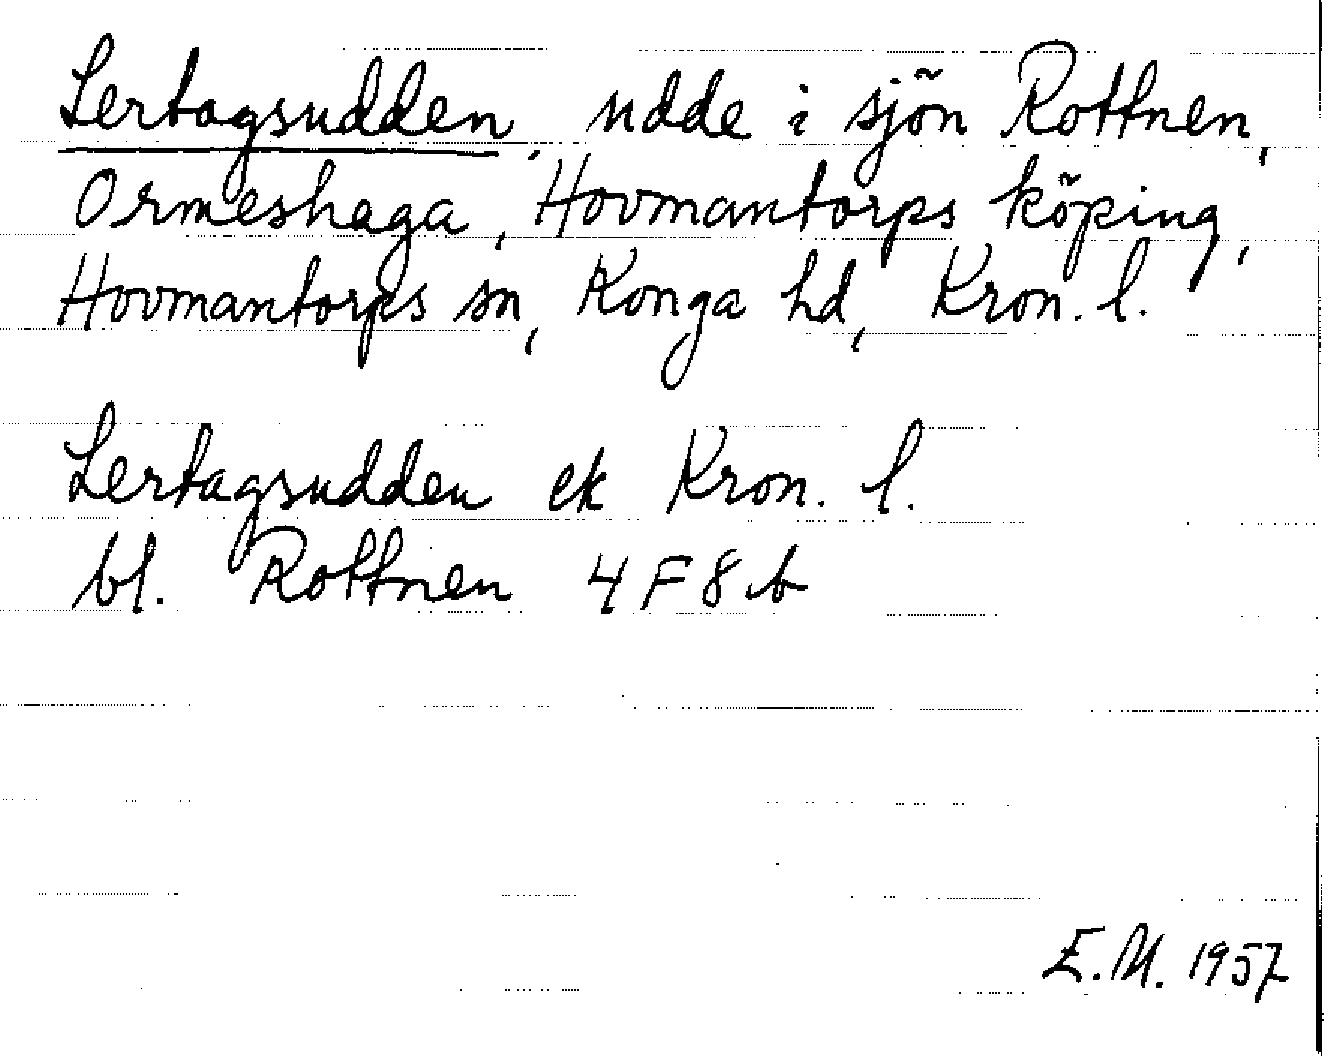 Lertagsudden, udde i sjön Rottnen,
Ormeshaga, Hovmantorps köping,
Hovmantorps sn, Konga hd, Kron. l.
Lertagsudden ek Kron. l.
bl. Rottnen 4 F 8 b
E.M. 1957